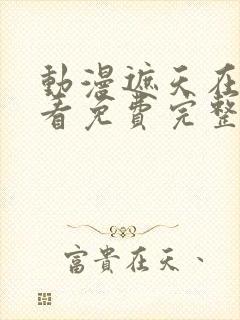 動漫遮天在
看免費完整
富貴在天、